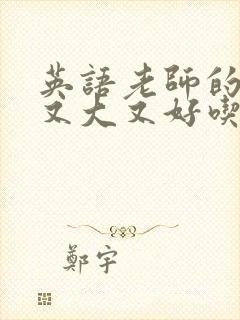 英語老師的
又大又好喫
鄭宇